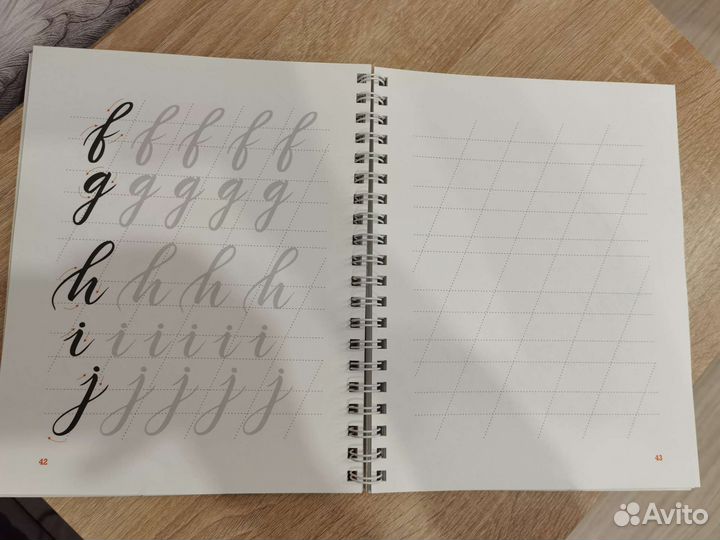 f f f f f
g g g g g
h h h h
i i i i i
j j j j j
42
43
Avito